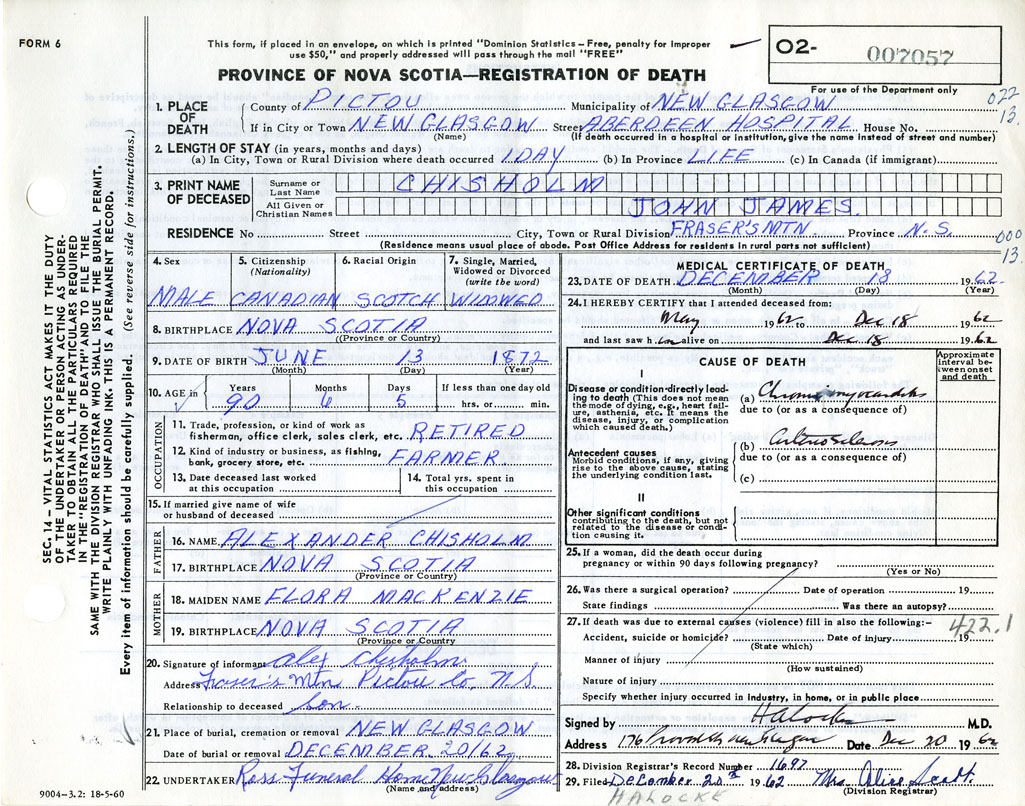 FORM 6
This form, if placed in an envelope, on which is printed "Dominion Statistics – Free, penalty for improper
use $50," and properly addressed will pass through the mail "FREE"
O2- 007057
For use of the Department only
PROVINCE OF NOVA SCOTIA—REGISTRATION OF DEATH
022
13.
1. PLACE OF DEATH
County of PICTOU Municipality of NEW GLASGOW
If in City or Town NEW GLASGOW Street ABERDEEN HOSPITAL House No.
(Name) (If death occurred in a hospital or institution, give the name instead of street and number)
2. LENGTH OF STAY (in years, months and days)
(a) In City, Town or Rural Division where death occurred 1 DAY (b) In Province LIFE (c) In Canada (if immigrant)
3. PRINT NAME OF DECEASED
Surname or Last Name CHISHOLM
All Given or Christian Names JOHN JAMES.
RESIDENCE No Street City, Town or Rural Division FRASER'S MTN. Province N.S.
(Residence means usual place of abode. Post Office Address for residents in rural parts not sufficient)
000
13.
4. Sex MALE
5. Citizenship (Nationality) CANADIAN
6. Racial Origin SCOTCH
7. Single, Married, Widowed or Divorced (write the word) WIDOWED
8. BIRTHPLACE NOVA SCOTIA
(Province or Country)
9. DATE OF BIRTH JUNE 13 1872
(Month) (Day) (Year)
10. AGE in Years 90 Months 6 Days 5 If less than one day old hrs. or min.
OCCUPATION
11. Trade, profession, or kind of work as fisherman, office clerk, sales clerk, etc. RETIRED
12. Kind of industry or business, as fishing, bank, grocery store, etc. FARMER.
13. Date deceased last worked at this occupation
14. Total yrs. spent in this occupation
15. If married give name of wife or husband of deceased
FATHER
16. NAME ALEXANDER CHISHOLM
17. BIRTHPLACE NOVA SCOTIA
(Province or Country)
MOTHER
18. MAIDEN NAME FLORA MACKENZIE
19. BIRTHPLACE NOVA SCOTIA
(Province or Country)
20. Signature of informant Alex Chisholm
Address Fraser's Mtn Pictou Co, N.S
Relationship to deceased Son.
21. Place of burial, cremation or removal NEW GLASGOW
Date of burial or removal DECEMBER 20/62
22. UNDERTAKER Ross Funeral Home New Glasgow
(Name and address)
9004-3.2: 18-5-60
MEDICAL CERTIFICATE OF DEATH
23. DATE OF DEATH DECEMBER 18 1962.
(Month) (Day) (Year)
24. I HEREBY CERTIFY that I attended deceased from:
May 1962 to Dec 18 1962
and last saw him alive on Dec 18 1962
CAUSE OF DEATH
Approximate interval between onset and death
I
Disease or condition directly leading to death (This does not mean the mode of dying, e.g., heart failure, asthenia, etc. It means the disease, injury, or complication which caused death.)
(a) Chronic myocarditis
due to (or as a consequence of)
Antecedent causes
Morbid conditions, if any, giving rise to the above cause, stating the underlying condition last.
(b) Arteriosclerosis
due to (or as a consequence of)
(c)
II
Other significant conditions
contributing to the death, but not related to the disease or condition causing it.
25. If a woman, did the death occur during pregnancy or within 90 days following pregnancy?
(Yes or No)
26. Was there a surgical operation? Date of operation 19
State findings Was there an autopsy?
27. If death was due to external causes (violence) fill in also the following:–
422.1
Accident, suicide or homicide? Date of injury 19
(State which)
Manner of injury
(How sustained)
Nature of injury
Specify whether injury occurred in industry, in home, or in public place
Signed by HA Locke M.D.
Address 176 Provost St New Glasgow Date Dec 20 1962
28. Division Registrar's Record Number 1697
29. Filed December 20th 1962 Mrs. Alice Scott.
(Division Registrar)
HA LOCKE
SEC. 14 – VITAL STATISTICS ACT MAKES IT THE DUTY
OF THE UNDERTAKER OR PERSON ACTING AS UNDER-
TAKER TO OBTAIN ALL THE PARTICULARS REQUIRED
IN THE "REGISTRATION OF DEATH" AND TO FILE THE
SAME WITH THE DIVISION REGISTRAR WHO SHALL ISSUE THE BURIAL PERMIT.
WRITE PLAINLY WITH UNFADING INK. THIS IS A PERMANENT RECORD.
Every item of information should be carefully supplied. (See reverse side for instructions.)